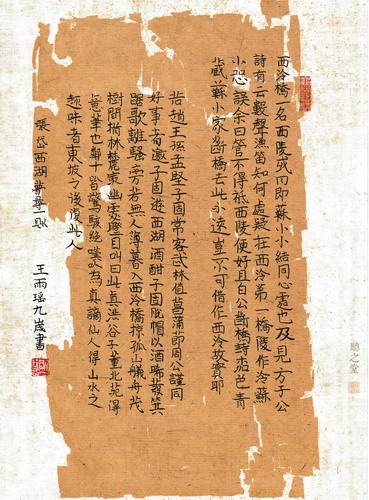 西泠橋一名西陵或曰即蘇小小結同心處也及見方子公
詩有云數聲漁笛知何處疑在西泠第一橋陵作泠蘇
小恐誤余曰管不得祗西陵便好且白公斷橋詩柳色青
藏蘇小家斷橋去此不遠豈不可借作西泠故實耶
昔趙王孫孟堅子固常客武林值菖蒲節周公謹同
好事者邀子固遊西湖酒酣子固脫帽以酒晞髮箕
踞歌離騷旁若無人薄暮入西泠橋掠孤山艤舟茂
樹間指林麓最幽處瞪目叫曰此真洪谷子董北苑得
意筆也鄰十皆驚駭絕嘆以為真謫仙人得山水之
趣味者東坡之後復此人
張岱西湖夢尋一則
王雨瑤九歲書